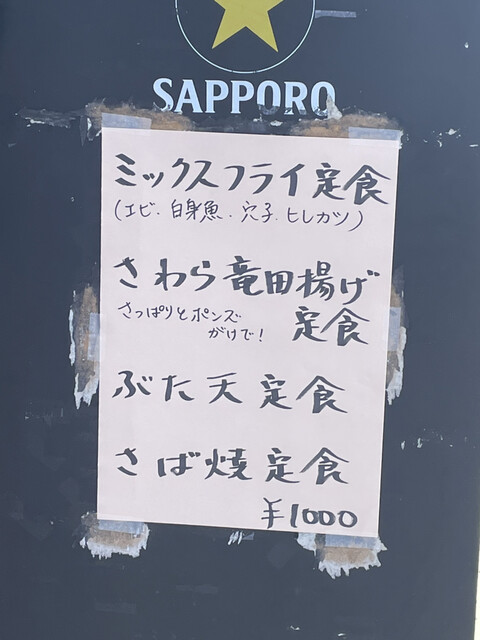 SAPPORO
ミックスフライ定食
(エビ.白身魚.穴子.ヒレカツ)
さわら竜田揚げ
さっぱりとポンズ
がけで!
定食
ぶた天定食
さば焼定食
¥1000